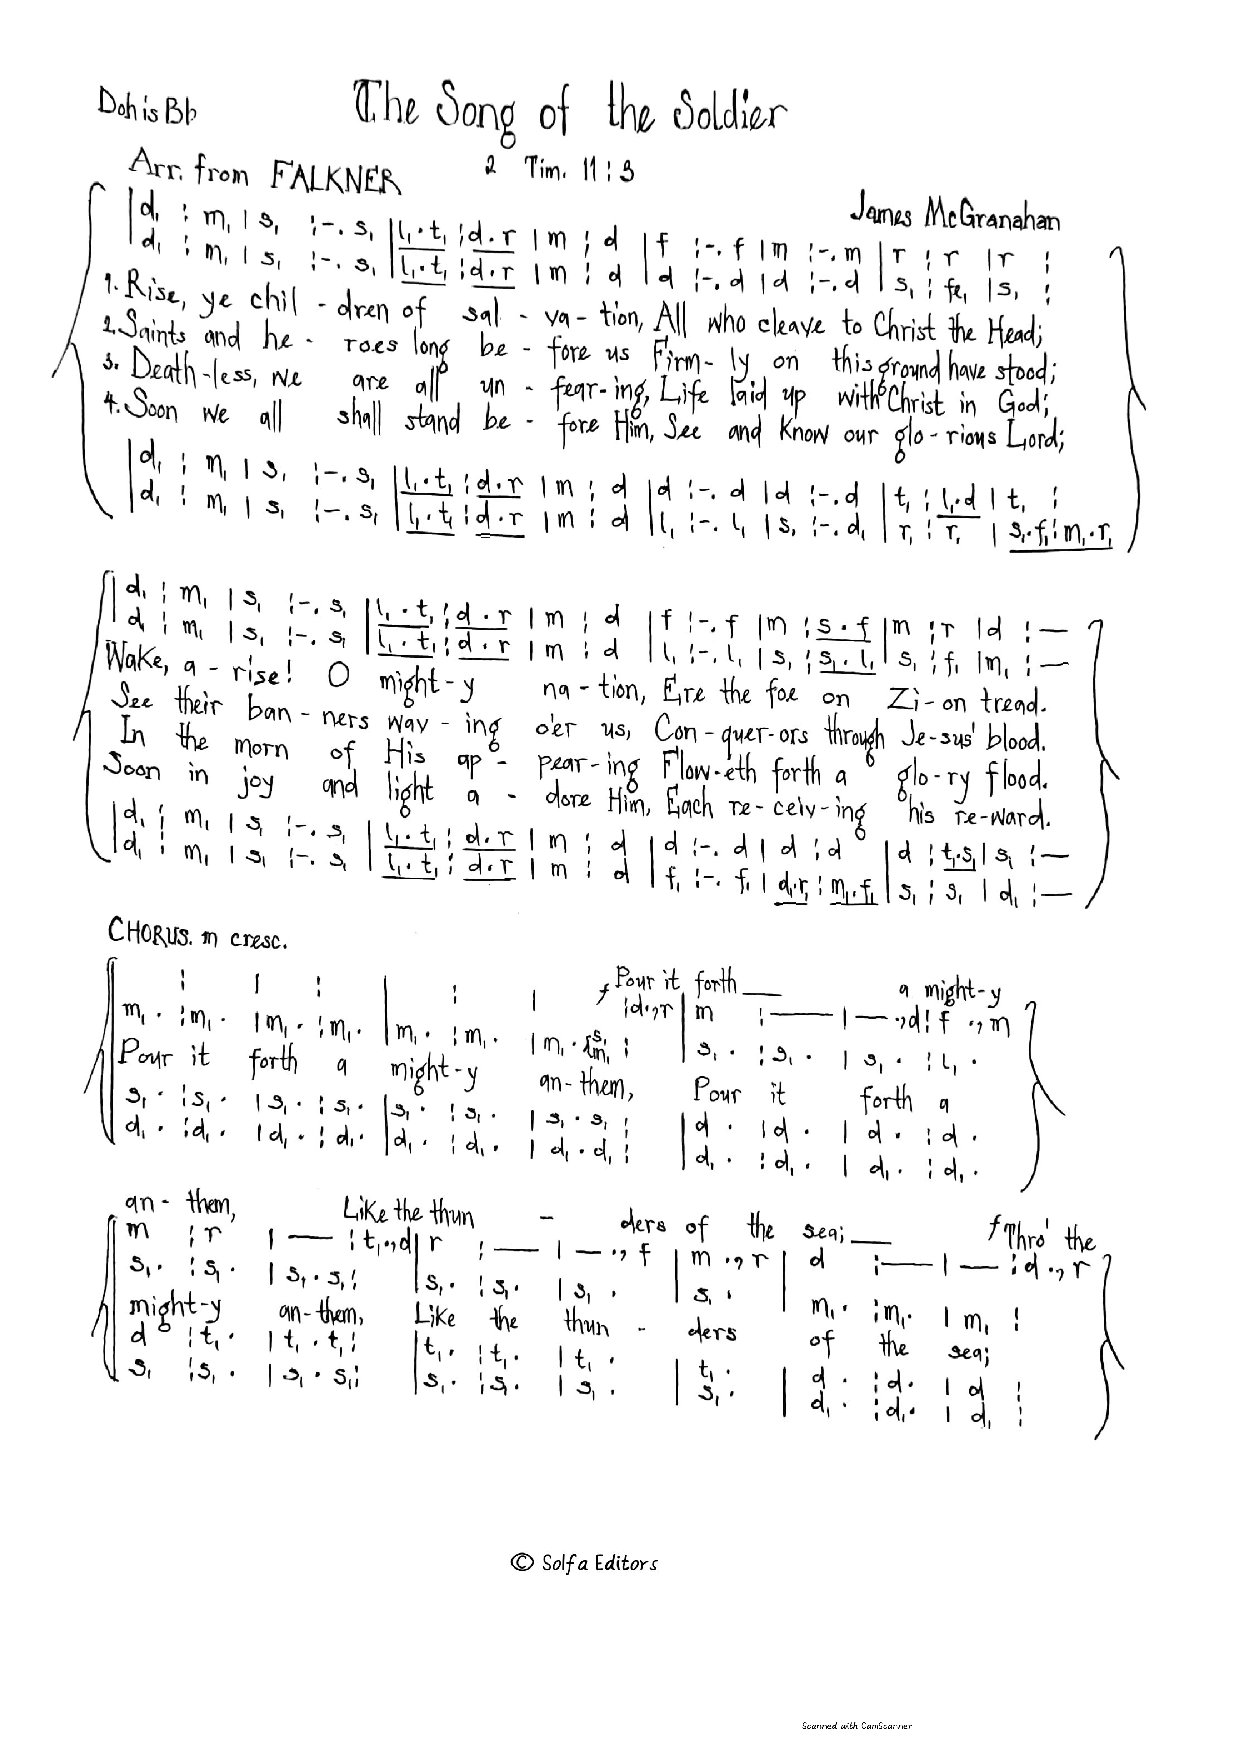 Doh is Bb
The Song of the Soldier
Arr. from FALKNER
2 Tim. 11 : 3
James McGranahan
|d₁ : m₁ | s₁ :-. s₁ |l₁.t₁ :d.r | m : d |f :-. f |m :-.m |r : r |r :
|d₁ : m₁ | s₁ :-. s₁ |l₁.t₁ :d.r | m : d |d :-.d |d :-.d |s₁ : fe₁ |s₁ :
1. Rise, ye chil - dren of sal - va - tion, All who cleave to Christ the Head;
2. Saints and he - roes long be - fore us Firm - ly on this ground have stood;
3. Death - less, we are all un - fear - ing, Life laid up with Christ in God;
4. Soon we all shall stand be - fore Him, See and know our glo - rious Lord;
|d₁ : m₁ | s₁ :-. s₁ |l₁.t₁ :d.r | m : d |d :-. d |d :-.d |t₁ : l₁.d | t₁ :
|d₁ : m₁ | s₁ :-. s₁ |l₁.t₁ :d.r | m : d |l₁ :-. l₁ |s₁ :-.d₁ |r₁ : r₁ | s₁.f₁:m₁.r₁
|d₁ : m₁ | s₁ :-. s₁ |l₁.t₁ :d.r | m : d |f :-. f |m :s.f |m :r |d :—
|d₁ : m₁ | s₁ :-. s₁ |l₁.t₁ :d.r | m : d |l₁ :-. l₁ |s₁ :s₁.l₁ |s₁ :f₁ |m₁ :—
Wake, a - rise! O might - y na - tion, Ere the foe on Zi - on tread.
See their ban - ners wav - ing o'er us, Con - quer - ors through Je - sus' blood.
In the morn of His ap - pear - ing Flow - eth forth a glo - ry flood.
Soon in joy and light a - dore Him, Each re - ceiv - ing his re - ward.
|d₁ : m₁ | s₁ :-. s₁ |l₁.t₁ :d.r | m : d |d :-. d | d :d |d :t₁.s₁| s₁ :—
|d₁ : m₁ | s₁ :-. s₁ |l₁.t₁ :d.r | m : d |f₁ :-. f₁ |d.r₁ :m₁.f₁ |s₁ : s₁ | d₁ :—
CHORUS. m cresc.
f Pour it forth — a might-y
: | : | : | :d.,r |m :— | — .,d:f .,m
m₁. :m₁. |m₁. :m₁. |m₁. :m₁. |m₁. : |s₁. :s₁. | s₁. :l₁.
Pour it forth a might-y an-them, Pour it forth a
s₁. :s₁. |s₁. :s₁. |s₁. :s₁. |s₁.s₁ : |d . :d . | d . :d .
d₁. :d₁. |d₁. :d₁. |d₁. :d₁. |d₁.d₁ : |d₁. :d₁. | d₁. :d₁.
an - them, Like the thun - ders of the sea; — f Thro' the
m :r | — :t₁.,d| r :— | — ., f | m .,r | d :— | — :d .,r
s₁. :s₁. |s₁.s₁: |s₁. :s₁. |s₁ . |s₁ . | m₁. :m₁. | m₁ :
might-y an-them, Like the thun - ders of the sea;
d :t₁. |t₁ . t₁: |t₁. :t₁. |t₁ . |t₁. |d . :d. | d :
s₁ :s₁ . |s₁ . s₁: |s₁. :s₁. |s₁ . |s₁. |d₁ . :d₁. | d₁ :
© Solfa Editors
Scanned with CamScanner